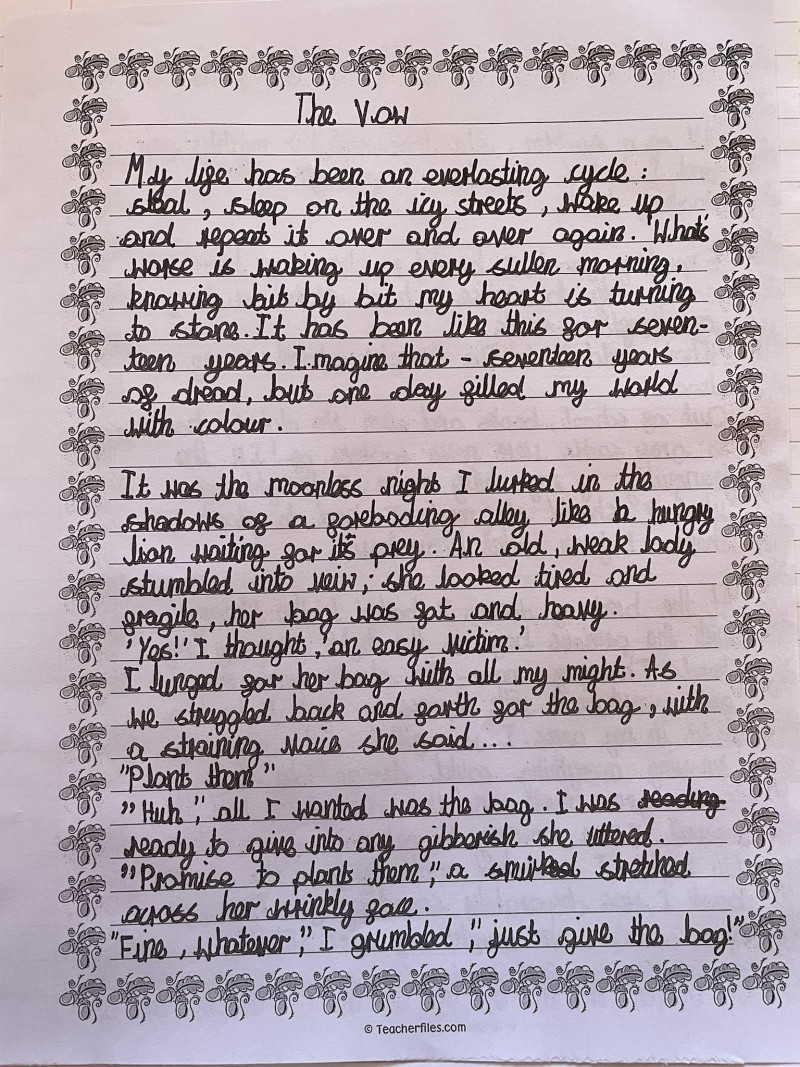 The Vow
My life has been an everlasting cycle :
steal , sleep on the icy streets , wake up
and repeat it over and over again. What's
worse is waking up every sullen morning,
knowing bit by bit my heart is turning
to stone. It has been like this for seven-
teen years. Imagine that - seventeen years
of dread, but one day filled my world
with colour.
It was the moonless night I lurked in the
shadows of a foreboding alley like a hungry
lion waiting for its prey. An old, weak lady
stumbled into veiw; she looked tired and
fragile, her bag was fat and heavy.
'Yes!' I thought, 'an easy victim.'
I lunged for her bag with all my might. As
we struggled back and forth for the bag, with
a straining voice she said...
"Plant them"
"Huh", all I wanted was the bag. I was reading
ready to give into any gibberish she uttered.
"Promise to plants them", a smirked stretched
across her wrinkly face.
"Fine, whatever", I grumbled ", just give the bag!"
© Teacherfiles.com